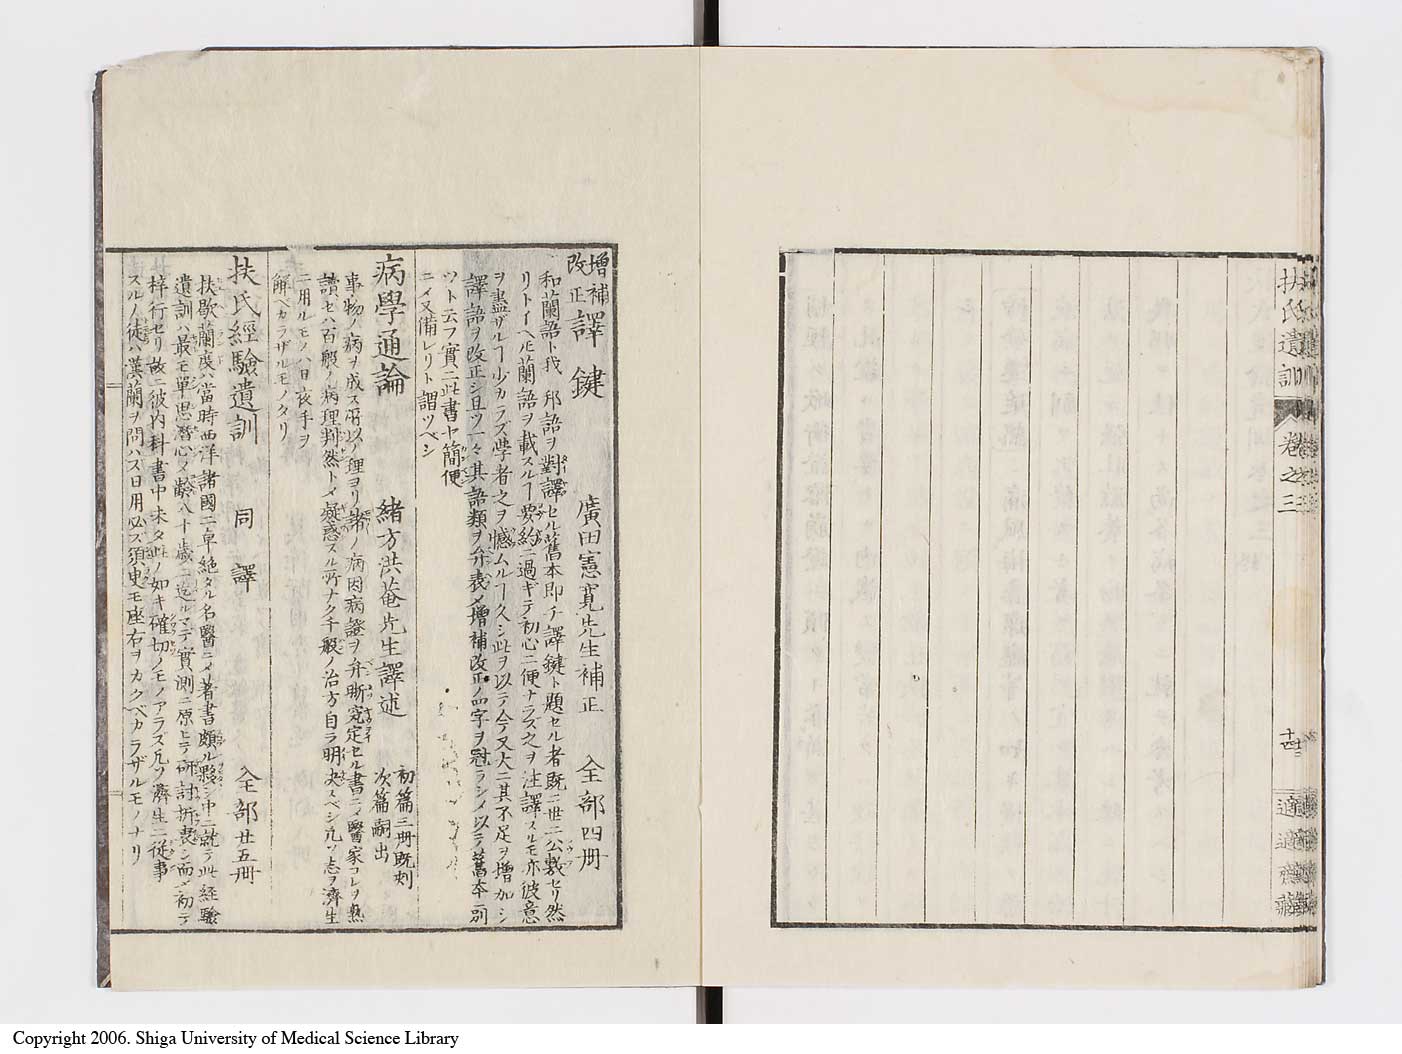 扶氏遺訓 卷之三
十四
適適齋藏
增補
改正
譯鍵 廣田憲寛先生補正 全部四册
和蘭語ト我 邦語ヲ對譯セル舊本即チ譯鍵ト題セル者既ニ世ニ公敷セリ然
リトイヘ𪜈蘭語ヲ載スルヿ要約ニ過ギテ初心ニ便ナラズ之ヲ注譯スルモ亦彼意
ヲ盡ザルヿ少カラズ學者之ヲ憾ムルヿ久シ此ヲ以テ今又大ニ其不足ヲ增加シ
譯語ヲ改正シ且ツ一々其語類ヲ弁表〆增補改正ノ四字ヲ冠ラシメ以テ舊本ニ別
ツト云フ實ニ此書ヤ簡便
ニ〆又備レリト謂ツベシ
病學通論 緒方洪菴先生譯述 初篇三册既刻
次篇嗣出
事物ノ病ヲ成ス所以ノ理ヨリ諸ノ病因病證ヲ弁晣究定セル書ニ〆醫家コレヲ熟
讀セハ百般ノ病理判然ト〆疑惑スル所ナク千般ノ治方自ラ明決スベシ凡ソ志ヲ濟生
ニ用ルモノハ日夜手ヲ
解ベカラザルモノタリ
扶氏經驗遺訓 同譯 全部廿五册
扶歇蘭度ハ當時西洋諸國ニ卓絶タル名醫ニ〆著書頗ル夥シ中ニ就テ此經驗
遺訓ハ最モ單思潛心〆齡八十歲ニ迄ルマデ實測ニ原ヒテ研討折衷シ而〆初テ
梓行セリ故ニ彼内科書中未タ此ノ如キ確切ノモノアラズ凡ソ濟生ニ從事
スルノ徒ハ漢蘭ヲ問ハス日用必ス須臾モ座右ヲカクベカラザルモノナリ